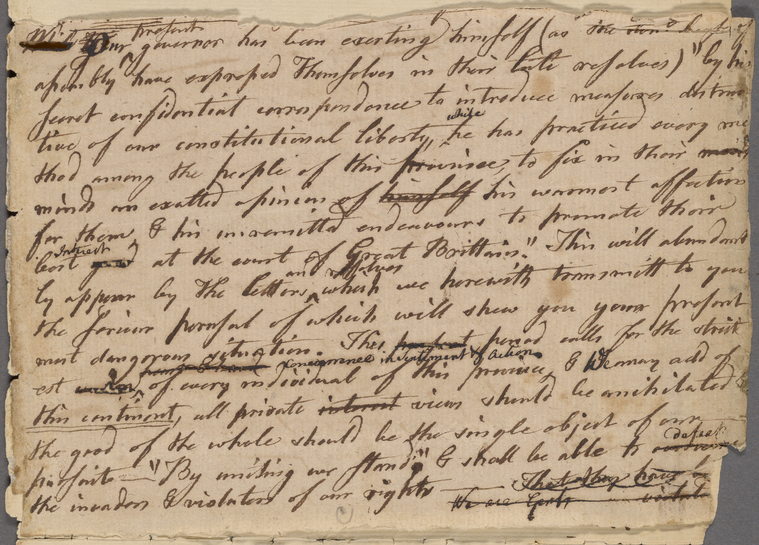 present
Our governor has been exerting himself (as the Hon.
assembly have expressed themselves in their late resolves) "by his
secret confidential correspondence to introduce measures destruc
tive of our constitutional liberty, while he has practiced every me
thod among the people of this province, to fix in their
minds an exalted opinion of himself his warmest affection
for them, & his unremitted endeavours to promote their
best interest at the court of Great Brittain." This will abundant
ly appear by the letters and resolves which we herewith transmitt to you
the serious perusal of which will shew you your present
most dangerous situation. This period calls for the strict
est concurrence in sentiment & action of every individual of this province, & we may add of
this continent, all private interest views should be annihilated
the good of the whole should be the single object of our
pursuits — "By uniting we stand," & shall be able to defeat
the invaders & violaters of our rights
That they have
We are Gent